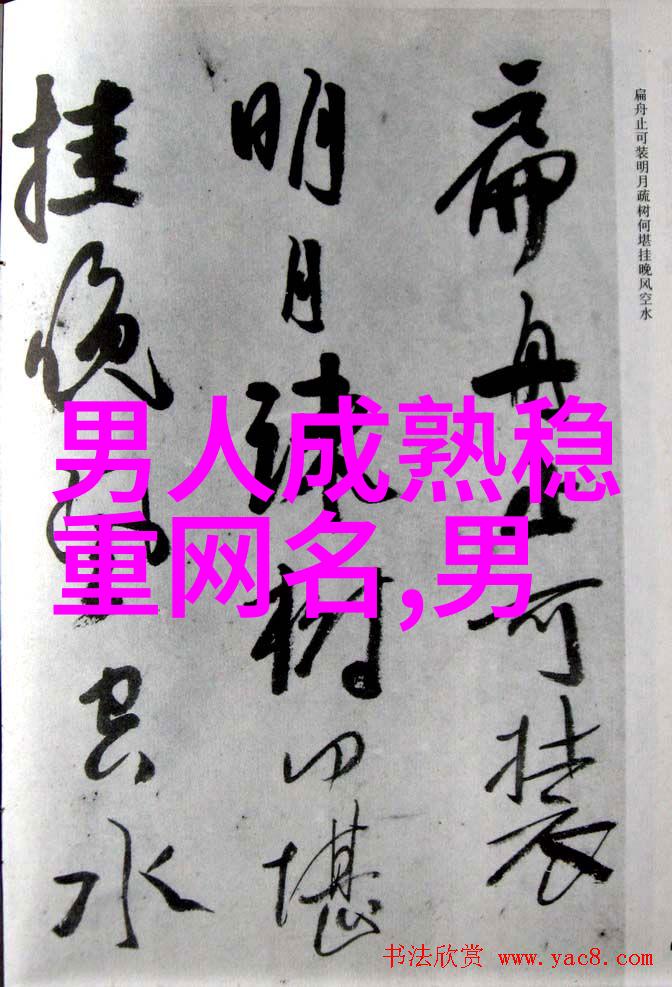 扁舟止可装
明月疏树何堪
挂晚风空水
扁舟止可装明月疏树何堪挂晚风空水
男人成熟稳
重网名,男
书法欣赏 www.yac8.com